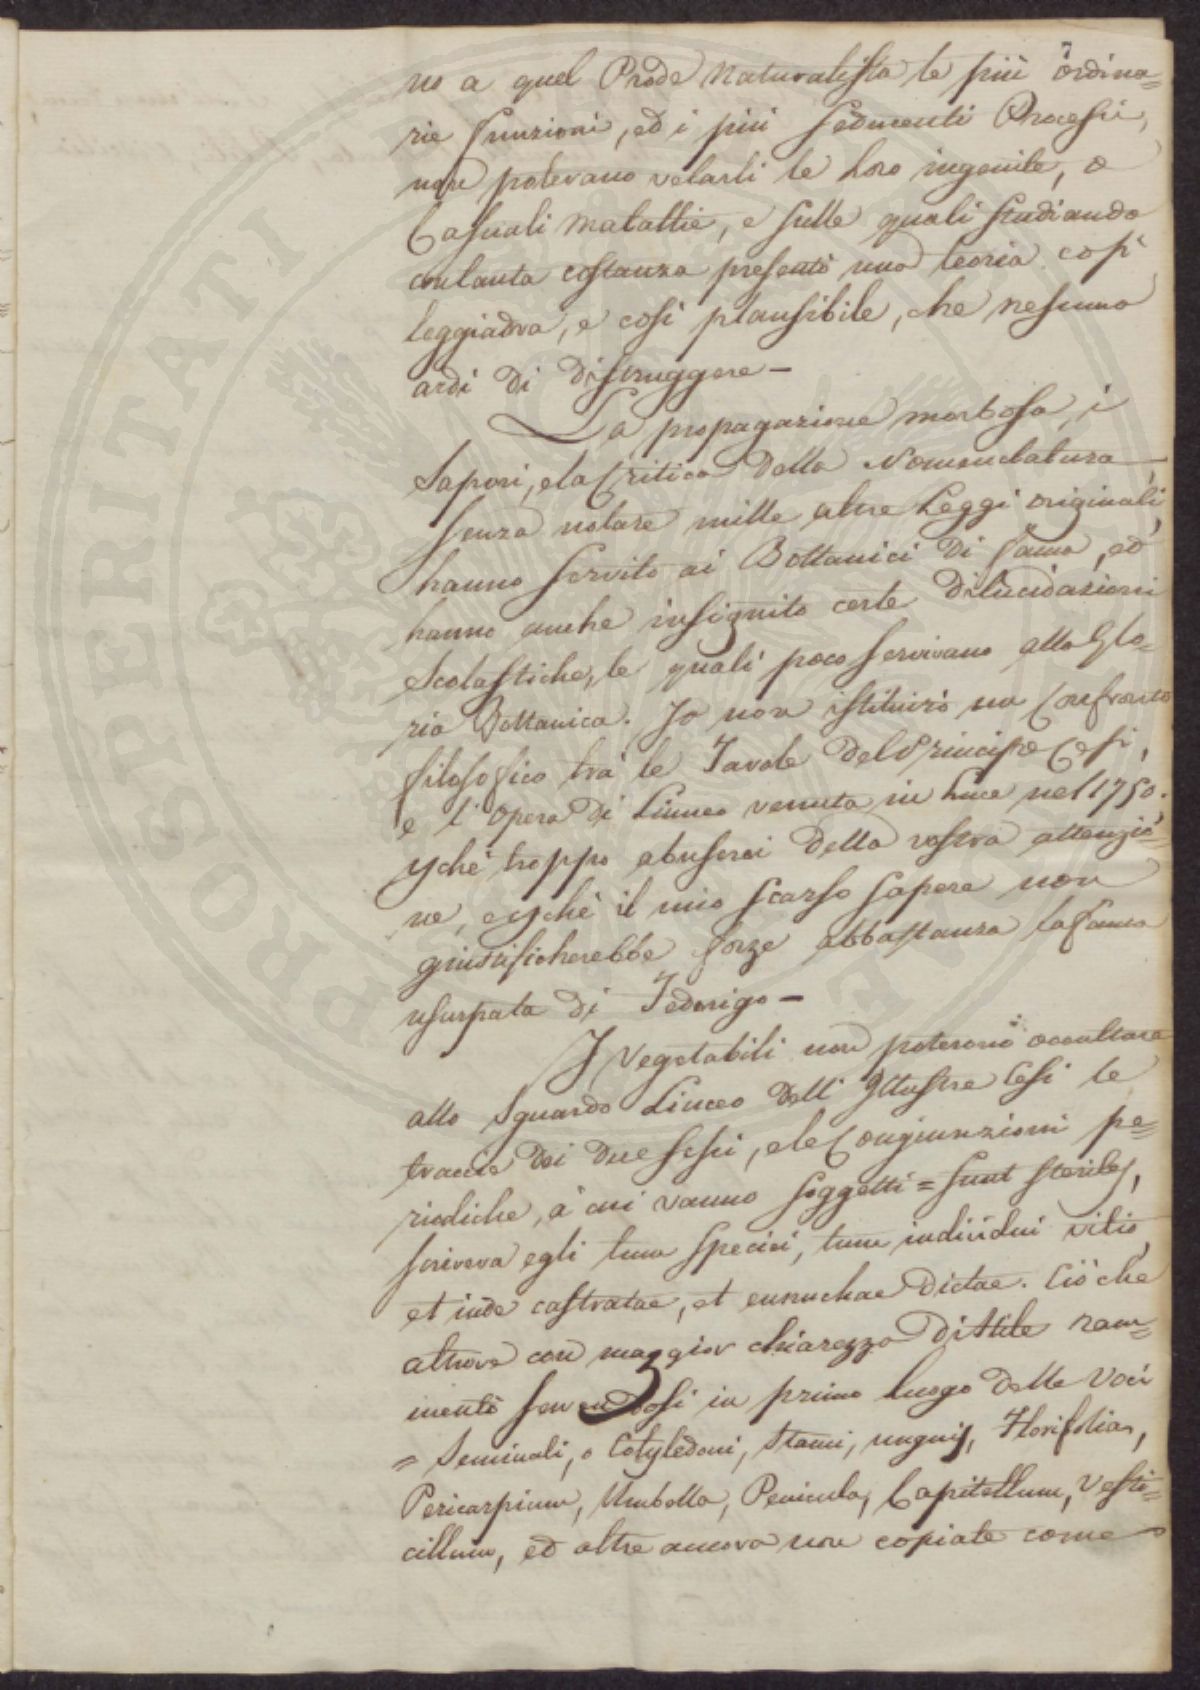 7
no a quel Prode Naturalista le più ordina=
rie funzioni, ed i più seducenti Processi,
non potevano velarsi le loro ingenite, o
Casuali malattie, e sulle quali studiando
con tanta costanza presentò una teoria così
leggiadra, e così plausibile, che nessuno
ardì di distruggere —
La propagazione morbosa, i
Sapori, e la Critica della Nomenclatura
senza notare mille altre Leggi originali,
hanno servito ai Bottanici di fama, ed
hanno anche insignito certe dilucidazioni
Scolastiche, le quali poco servivano alla Glo=
ria Bottanica. Io non istituirò un Confronto
filosofico trà le Tavole del Principe Cesi,
e l'opera di Linneo venuta in Luce nel 1750.
troppo abuserei della vostra attenzio=
ne, e il mio scarso sapere non
giustificherebbe forze abbastanza la fama
usurpata di Federigo —
I Vegetabili non poterono occultare
allo sguardo Linceo dell' Illustre Cesi le
traccie dei due sessi, e le Congiunzioni pe=
riodiche, à cui vanno soggetti = sunt steriles,
scriveva egli tum speciei, tum individui vitio,
et inde castratae, et eunuchae dictae. Ciò che
altrove con maggior chiarezza di stile ram=
mentò servendosi in primo luogo delle voci
= Seminali, o Cotyledoni, stami, unguis, Florifolia,
Pericarpium, Umbella, Penicula, Capitellum, Verti=
cillum, ed altre ancora non copiate come